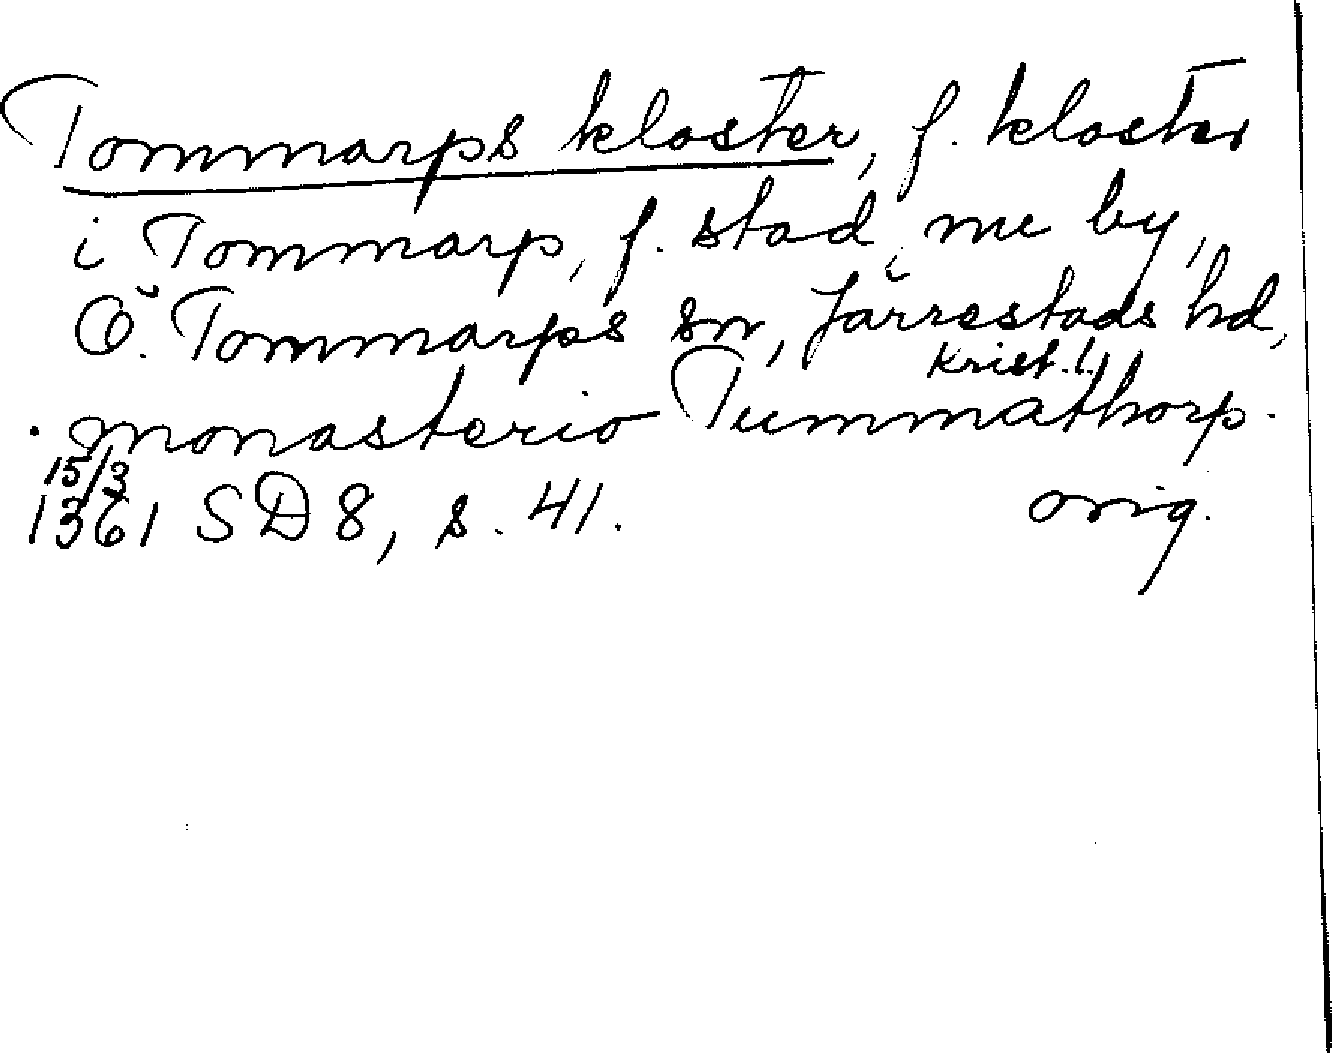 Tommarps kloster, f. kloster
i Tommarp, f. stad, nu by,
Ö. Tommarps sn, Järrestads hd,
Krist. l.
monasterio Tummathorp.
15/3
1361 SD 8, s. 41. orig.